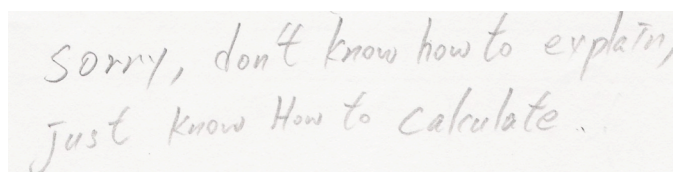 Sorry, don't know how to explain,
just know How to calculate.